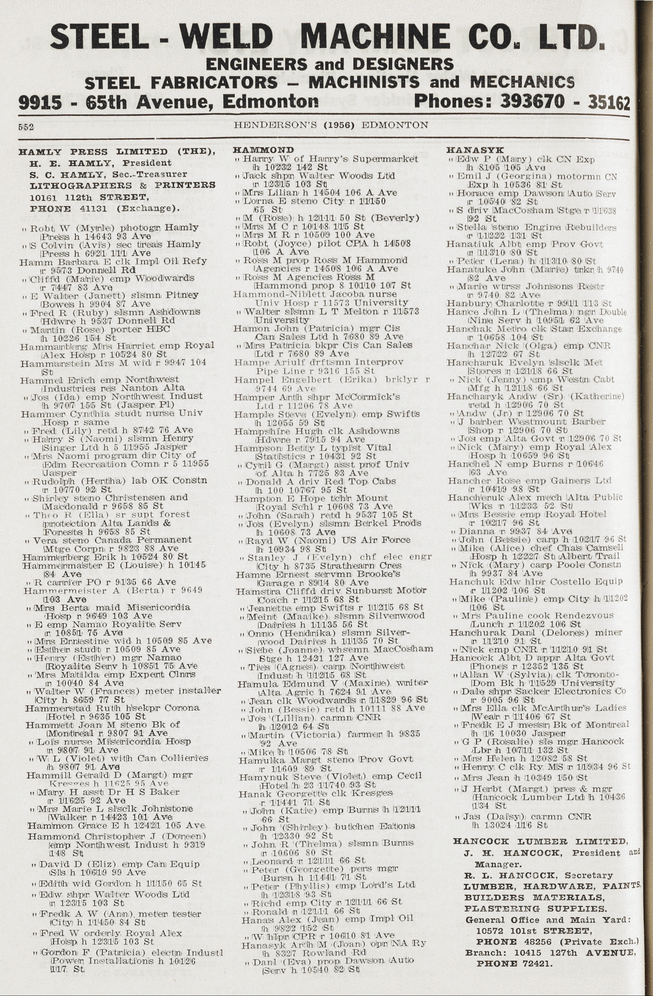 STEEL - WELD MACHINE CO. LTD.
ENGINEERS and DESIGNERS
STEEL FABRICATORS — MACHINISTS and MECHANICS
9915 - 65th Avenue, Edmonton Phones: 393670 - 35162
552 HENDERSON'S (1956) EDMONTON
HAMLY PRESS LIMITED (THE),
H. E. HAMLY, President
S. C. HAMLY, Sec.-Treasurer
LITHOGRAPHERS & PRINTERS
10161 112th STREET,
PHONE 41131 (Exchange).
" Robt W (Myrle) photogr Hamly
Press h 14643 93 Ave
" S Colvin (Avis) sec treas Hamly
Press h 6921 111 Ave
Hamm Barbara E clk Impl Oil Refy
r 9573 Donnell Rd
" Cliffd (Marie) emp Woodwards
r 7447 83 Ave
" E Walter (Janett) slsmn Pitney
Bowes h 9904 87 Ave
" Fred R (Ruby) slsmn Ashdowns
Hdwre h 9537 Donnell Rd
" Martin (Rose) porter HBC
h 10226 154 St
Hammarberg Mrs Harriet emp Royal
Alex Hosp r 10524 80 St
Hammarstein Mrs M wid r 9947 104
St
Hammel Erich emp Northwest
Industries res Nanton Alta
" Jos (Ida) emp Northwest Indust
h 9707 155 St (Jasper Pl)
Hammer Cynthia studt nurse Univ
Hosp r same
" Fred (Lily) retd h 8742 76 Ave
" Harry S (Naomi) slsmn Henry
Singer Ltd h 5 11955 Jasper
" Mrs Naomi program dir City of
Edm Recreation Comn r 5 11955
Jasper
" Rudolph (Hertha) lab OK Constn
r 10770 92 St
" Shirley steno Christensen and
Macdonald r 9658 85 St
" Theo R (Ella) sr supt forest
protection Alta Lands &
Forests h 9658 85 St
" Vera steno Canada Permanent
Mtge Corpn r 9823 88 Ave
Hammerberg Erik h 10524 80 St
Hammermaster E (Louise) h 10145
84 Ave
" R carrier PO r 9135 66 Ave
Hammermeister A (Berta) r 9649
103 Ave
" Mrs Berta maid Misericordia
Hosp r 9649 103 Ave
" E emp Namao Royalite Serv
r 10851 75 Ave
" Mrs Ernestine wid h 10509 85 Ave
" Esther studt r 10509 85 Ave
" Henry (Esther) mgr Namao
Royalite Serv h 10851 75 Ave
" Mrs Matilda emp Expert Clnrs
r 10040 84 Ave
" Walter W (Frances) meter installer
City h 8659 77 St
Hammerstad Ruth hsekpr Corona
Hotel r 9635 105 St
Hammett Joan M steno Bk of
Montreal r 9807 91 Ave
" Lois nurse Misericordia Hosp
r 9807 91 Ave
" W L (Violet) with Can Collieries
h 9807 91 Ave
Hammill Gerald D (Margt) mgr
Kresges h 11625 95 Ave
" Mary H asst Dr H S Baker
r 11625 92 Ave
" Mrs Marie L slsclk Johnstone
Walker r 14423 101 Ave
Hammon Grace E h 12421 105 Ave
Hammond Christopher J (Doreen)
emp Northwest Indust h 9319
148 St
" David D (Eliz) emp Can Equip
Sls h 10619 99 Ave
" Edith wid Gordon h 11150 65 St
" Edw shpr Walter Woods Ltd
r 12315 103 St
" Fredk A W (Ann) meter tester
City h 11450 84 St
" Fred W orderly Royal Alex
Hosp h 12315 103 St
" Gordon F (Patricia) electn Industl
Power Installations h 10126
117 St
HAMMOND
" Harry W of Harry's Supermarket
h 10232 142 St
" Jack shpr Walter Woods Ltd
r 12315 103 St
" Mrs Lilian h 14504 106 A Ave
" Lorna E steno City r 11150
65 St
" M (Rose) h 12111 50 St (Beverly)
" Mrs M C r 10148 115 St
" Mrs M R r 5100 Ave
" Robt (Joyce) pilot CPA h 14508
106 A Ave
" Ross M prop Ross M Hammond
Agencies r 14508 106 A Ave
" Ross M Agencies Ross M
Hammond prop 8 10110 107 St
Hammond-Niblett Jacoba nurse
Univ Hosp r 11573 University
" Walter slsmn L T Melton r 11573
University
Hamon John (Patricia) mgr Cis
Can Sales Ltd h 7680 89 Ave
" Mrs Patricia bkpr Cis Can Sales
Ltd r 7680 89 Ave
Hampe Ariulf drftsmn Interprov
Pipe Line r 9316 155 St
Hampel Engelbert (Erika) brklyr r
9744 69 Ave
Hamper Arth shpr McCormick's
Ltd r 11206 78 Ave
Hample Steve (Evelyn) emp Swifts
h 12055 59 St
Hampshire Hugh clk Ashdowns
Hdwre r 7915 94 Ave
Hampson Betty L typist Vital
Statistics r 10431 92 St
" Cyril G (Margt) asst prof Univ
of Alta h 7725 83 Ave
" Donald A driv Red Top Cabs
h 100 10767 95 St
Hampton E Hope tchr Mount
Royal Schl r 10608 73 Ave
" John (Sarah) retd h 9537 105 St
" Jos (Evelyn) slsmn Berkel Prods
h 10608 73 Ave
" Rayd W (Naomi) US Air Force
h 10934 98 St
" Stanley J (Evelyn) chf elec engr
City h 8735 Strathearn Cres
Hamre Ernest servmn Brooke's
Garage r 8914 80 Ave
Hamstra Cliffd driv Sunburst Motor
Coach r 11215 68 St
" Jeanette emp Swifts r 11215 68 St
" Meint (Maaike) slsmn Silverwood
Dairies h 11135 56 St
" Onno (Hendrika) slsmn Silver-
wood Dairies h 11135 70 St
" Siebe (Joanne) whsemn MacCosham
Stge h 12421 127 Ave
" Ties (Agnes) carp Northwest
Indust h 11215 68 St
Hamula Edmund V (Maxine) waiter
Alta Agric h 7624 91 Ave
" Jean clk Woodwards r 11829 96 St
" John (Bessie) retd h 10111 88 Ave
" Jos (Lillian) carmn CNR
h 12012 64 St
" Martin (Victoria) farmer h 9835
92 Ave
" Mike h 10506 78 St
Hamulka Margt steno Prov Govt
r 11609 89 St
Hamynuk Steve (Violet) emp Cecil
Hotel h 23 11740 93 St
Hanak Georgette clk Kresges
r 11441 71 St
" John (Katie) emp Burns h 12111
66 St
" John (Shirley) butcher Eatons
h 12330 92 St
" John R (Thelma) slsmn Burns
r 10606 80 St
" Leonard r 12111 66 St
" Peter (Georgette) pers mgr
Burns h 11441 71 St
" Peter (Phyllis) emp Lord's Ltd
h 12318 93 St
" Richd emp City r 12111 66 St
" Ronald r 12111 66 St
Hanas Alex (Jean) emp Impl Oil
h 9822 152 St
" W hlpr CPR r 10610 81 Ave
Hanasyk Arth M (Joan) opr NA Ry
h 8327 Rowland Rd
" Danl (Eva) prop Dawson Auto
Serv h 10540 82 St
HANASYK
" Edw P (Mary) clk CN Exp
h 8105 105 Ave
" Emil J (Georgina) motormn CN
Exp h 10536 81 St
" Horace emp Dawson Auto Serv
r 10540 82 St
" S driv MacCosham Stge r 11638
92 St
" Stella steno Engine Rebuilders
r 11222 131 St
Hanatiuk Albt emp Prov Govt
r 11310 80 St
" Peter (Lena) h 11310 80 St
Hanatuke John (Marie) tnkr h 9740
82 Ave
" Marie wtrss Johnsons Restr
r 9740 82 Ave
Hanbury Charlotte r 9911 113 St
Hance John L (Thelma) ngr Double
Nine Serv h 10951 62 Ave
Hanchak Metro clk Star Exchange
r 10658 104 St
Hanchar Nick (Olga) emp CNR
h 12722 67 St
Hancharuk Evelyn slsclk Met
Stores r 12118 66 St
" Nick (Jenny) emp Westn Cabt
Mfg h 12118 66 St
Hancharyk Andw (Sr) (Katherine)
retd h 12906 70 St
" Andw (Jr) r 12906 70 St
" J barber Westmount Barber
Shop r 12906 70 St
" Jos emp Alta Govt r 12906 70 St
" Nick (Mary) emp Royal Alex
Hosp h 10659 96 St
Hanchel N emp Burns r 10646
63 Ave
Hancher Rose emp Gainers Ltd
r 10419 98 St
Hancheruk Alex mech Alta Public
Wks r 11233 52 St
" Mrs Bessie emp Royal Hotel
r 10217 96 St
" Dianna r 9937 84 Ave
" John (Bessie) carp h 10217 96 St
" Mike (Alice) chef Chas Camsell
Hosp h 12227 St Albert Trail
" Nick (Mary) carp Poole Constn
h 9937 84 Ave
Hanchuk Edw hlpr Costello Equip
r 11202 106 St
" Mike (Pauline) emp City h 11202
106 St
" Mrs Pauline cook Rendezvous
Lunch r 11202 106 St
Hanchurak Danl (Delores) miner
h 11210 91 St
" Nick emp CNR r 11210 91 St
Hancock Albt D appr Alta Govt
Phones r 12352 135 St
" Allan W (Sylvia) clk Toronto-
Dom Bk h 11529 University
" Dale shpr Sacker Electronics Co
r 9005 96 St
" Mrs Ella clk McArthur's Ladies
Wear r 11406 67 St
" Fredk E J messr Bk of Montreal
h 16 10030 Jasper
" G P (Rosalie) sls mgr Hancock
Lbr h 10711 132 St
" Mrs Helen h 12082 58 St
" Henry C clk Ry MS r 11934 96 St
" Mrs Jean h 10349 150 St
" J Herbt (Margt) pres & mgr
Hancock Lumber Ltd h 10436
134 St
" Jas (Daisy) carmn CNR
h 13024 116 St
HANCOCK LUMBER LIMITED,
J. H. HANCOCK, President and
Manager.
R. L. HANCOCK, Secretary
LUMBER, HARDWARE, PAINTS,
BUILDERS MATERIALS,
PLASTERING SUPPLIES.
General Office and Main Yard:
10572 101st STREET,
PHONE 48256 (Private Exch.)
Branch: 10415 127th AVENUE,
PHONE 72421.